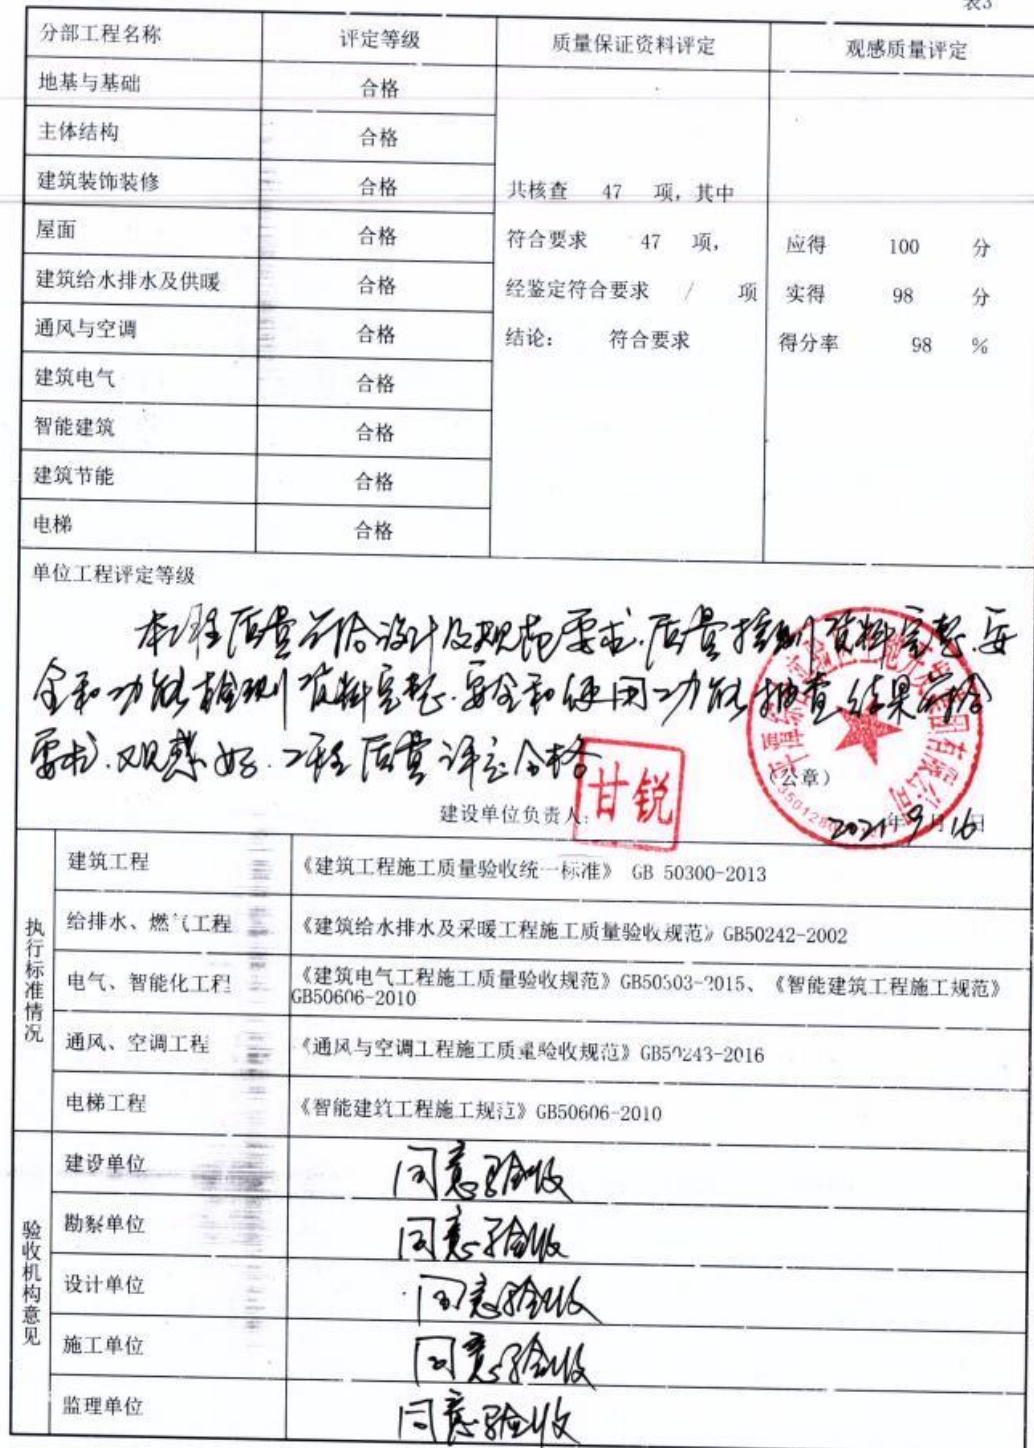 表3
分部工程名称 评定等级 质量保证资料评定 观感质量评定
地基与基础 合格
主体结构 合格
建筑装饰装修 合格 共核查 47 项，其中
屋面 合格 符合要求 47 项， 应得 100 分
建筑给水排水及供暖 合格 经鉴定符合要求 / 项 实得 98 分
通风与空调 合格 结论： 符合要求 得分率 98 %
建筑电气 合格
智能建筑 合格
建筑节能 合格
电梯 合格
单位工程评定等级
本工程质量符合设计及规范要求.质量控制资料完整.安
全和功能检测资料完整.安全和使用功能抽查结果符合
要求.观感好.工程质量评定合格
甘锐
（公章）
建设单位负责人：
2021年9月16日
执行标准情况
建筑工程 《建筑工程施工质量验收统一标准》 GB 50300-2013
给排水、燃气工程 《建筑给水排水及采暖工程施工质量验收规范》GB50242-2002
电气、智能化工程 《建筑电气工程施工质量验收规范》GB50303-2015、《智能建筑工程施工规范》
GB50606-2010
通风、空调工程 《通风与空调工程施工质量验收规范》GB50243-2016
电梯工程 《智能建筑工程施工规范》GB50606-2010
验收机构意见
建设单位 同意验收
勘察单位 同意验收
设计单位 同意验收
施工单位 同意验收
监理单位 同意验收